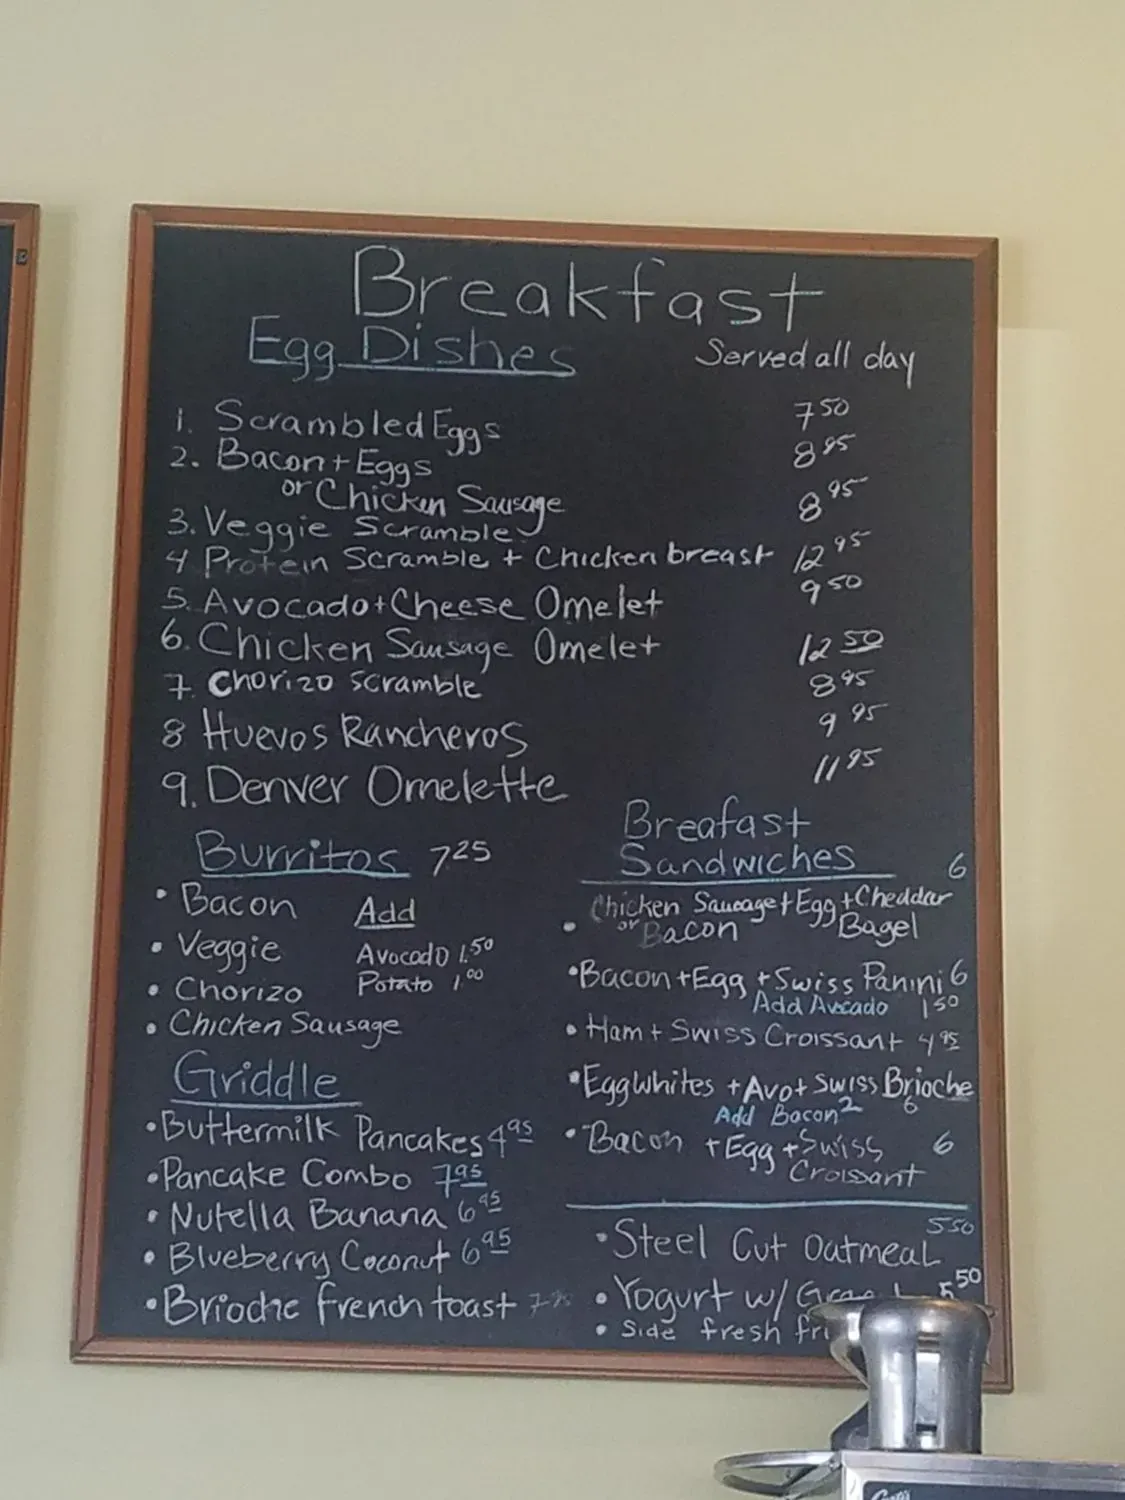 Breakfast
Egg Dishes
Served all day
1. Scrambled Eggs 7 50
2. Bacon + Eggs 8 95
or Chicken Sausage
3. Veggie Scramble 8 95
4 Protein Scramble + Chicken breast 12 95
5. Avocado + Cheese Omelet 9 50
6. Chicken Sausage Omelet 12 50
7. Chorizo Scramble 8 95
8 Huevos Rancheros 9 95
9. Denver Omelette 11 95
Burritos 7.25
• Bacon
• Veggie
• Chorizo
• Chicken Sausage
Add
Avocado 1.50
Potato 1.00
Griddle
• Buttermilk Pancakes 4 95
• Pancake Combo 7 95
• Nutella Banana 6 95
• Blueberry Coconut 6 95
• Brioche french toast 7 95
Breafast
Sandwiches 6
Chicken Sausage + Egg + Cheddar
• or Bacon Bagel
• Bacon + Egg + Swiss Panini 6
Add Avocado 1 50
• Ham + Swiss Croissant 4 95
• Egg Whites + Avo + Swiss Brioche
Add Bacon 2 6
• Bacon + Egg + Swiss 6
Croissant
• Steel Cut Oatmeal 5 50
• Yogurt w/ 5 50
• Side fresh